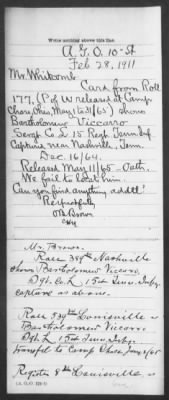 Write nothing above this line.
A.G.O. 10-St
Feb 28, 1911
Mr. Whitcomb
Card from Roll
177, (P of W released at Camp
Chase, Ohio, May 1 to 31/65) shows
Bartholomew Viccaro
Sergt Co L 15 Regt Tenn Inf
Captured near Nashville, Tenn.
Dec. 16/64.
Released May 11/65 - Oath.
We fail to locate him.
Can you find anything addtl?
Respectfully
Brown
Mr. Brown.
Roll 384 Nashville
shows Bartholomew Vicaro
Sgt. Co L, 15 Tenn. Infy
capture as above.
Roll Louisville
Bartholomew Vicaro
Sgt. L 15 Tenn. Infy.
transfd to Camp Chase Jany 2/65
Register Louisville
(A. G. O.